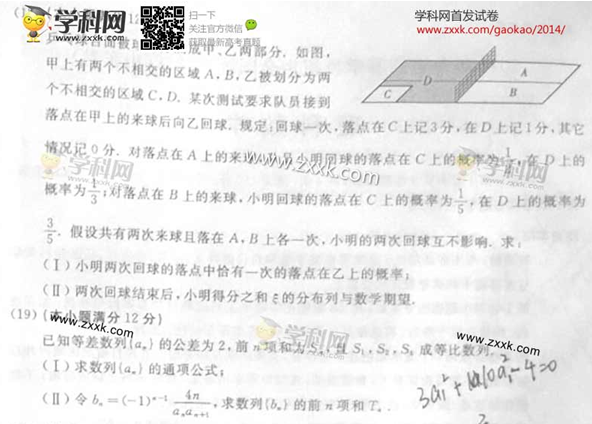 学科网 扫一下 学科网首发试卷
关注官方微信
获取最新高考真题 www.zxxk.com/gaokao/2014/
成甲、乙两部分．如图，
甲上有两个不相交的区域 A，B，乙被划分为两
个不相交的区域 C，D．某次测试要求队员接到
落点在甲上的来球后向乙回球．规定：回球一次，落点在 C 上记 3 分，在 D 上记 1 分，其它
情况记 0 分．对落点在 A 上的来球，小明回球的落点在 C 上的概率为，在 D 上的
概率为 1/3；对落点在 B 上的来球，小明回球的落点在 C 上的概率为 1/5，在 D 上的概率为
3/5．假设共有两次来球且落在 A，B 上各一次，小明的两次回球互不影响．求：
（Ⅰ）小明两次回球的落点中恰有一次的落点在乙上的概率；
（Ⅱ）两次回球结束后，小明得分之和 ξ 的分布列与数学期望．
(19)（本小题满分 12 分）
已知等差数列{aₙ}的公差为 2，前 n 项和为 Sₙ，且 S₁，S₂，S₄ 成等比数列．
（Ⅰ）求数列{aₙ}的通项公式；
（Ⅱ）令 bₙ=(-1)ⁿ⁻¹ 4n/(aₙaₙ₊₁)，求数列{bₙ}的前 n 项和 Tₙ．
A
B
C
D
学科网
www.zxxk.com
学科网
www.zxxk.com
学科网
www.zxxk.com